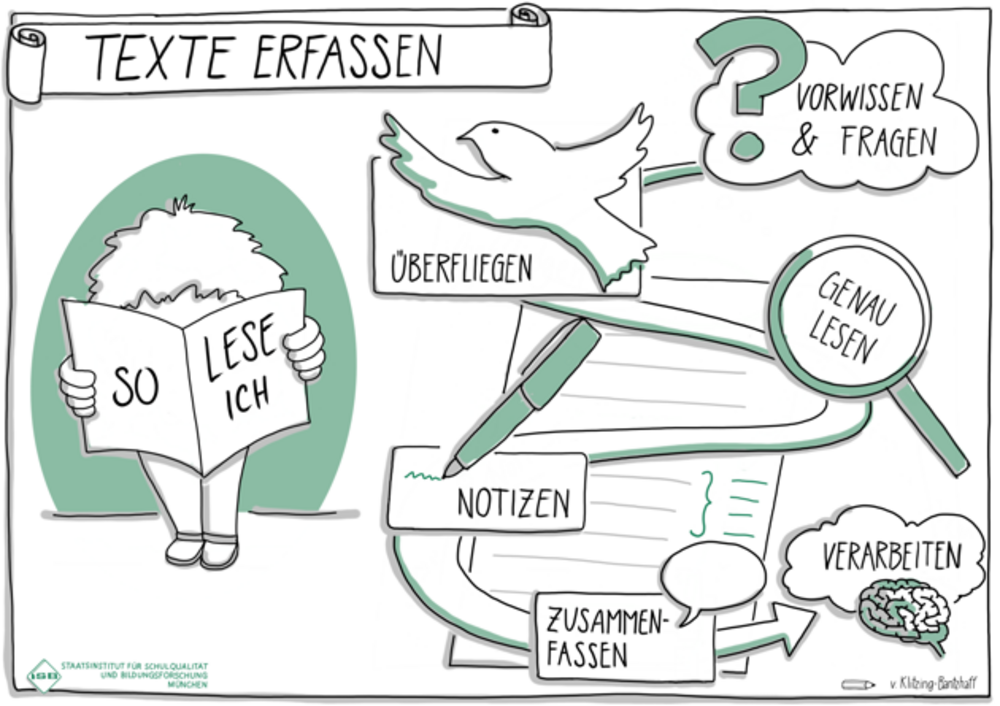 TEXTE ERFASSEN
VORWISSEN
& FRAGEN
ÜBERFLIEGEN
GENAU
LESEN
SO
LESE
ICH
NOTIZEN
VERARBEITEN
ZUSAMMEN-
FASSEN
ISB
STAATSINSTITUT FÜR SCHULQUALITÄT
UND BILDUNGSFORSCHUNG
MÜNCHEN
v. Klitzing-Bantzhaff